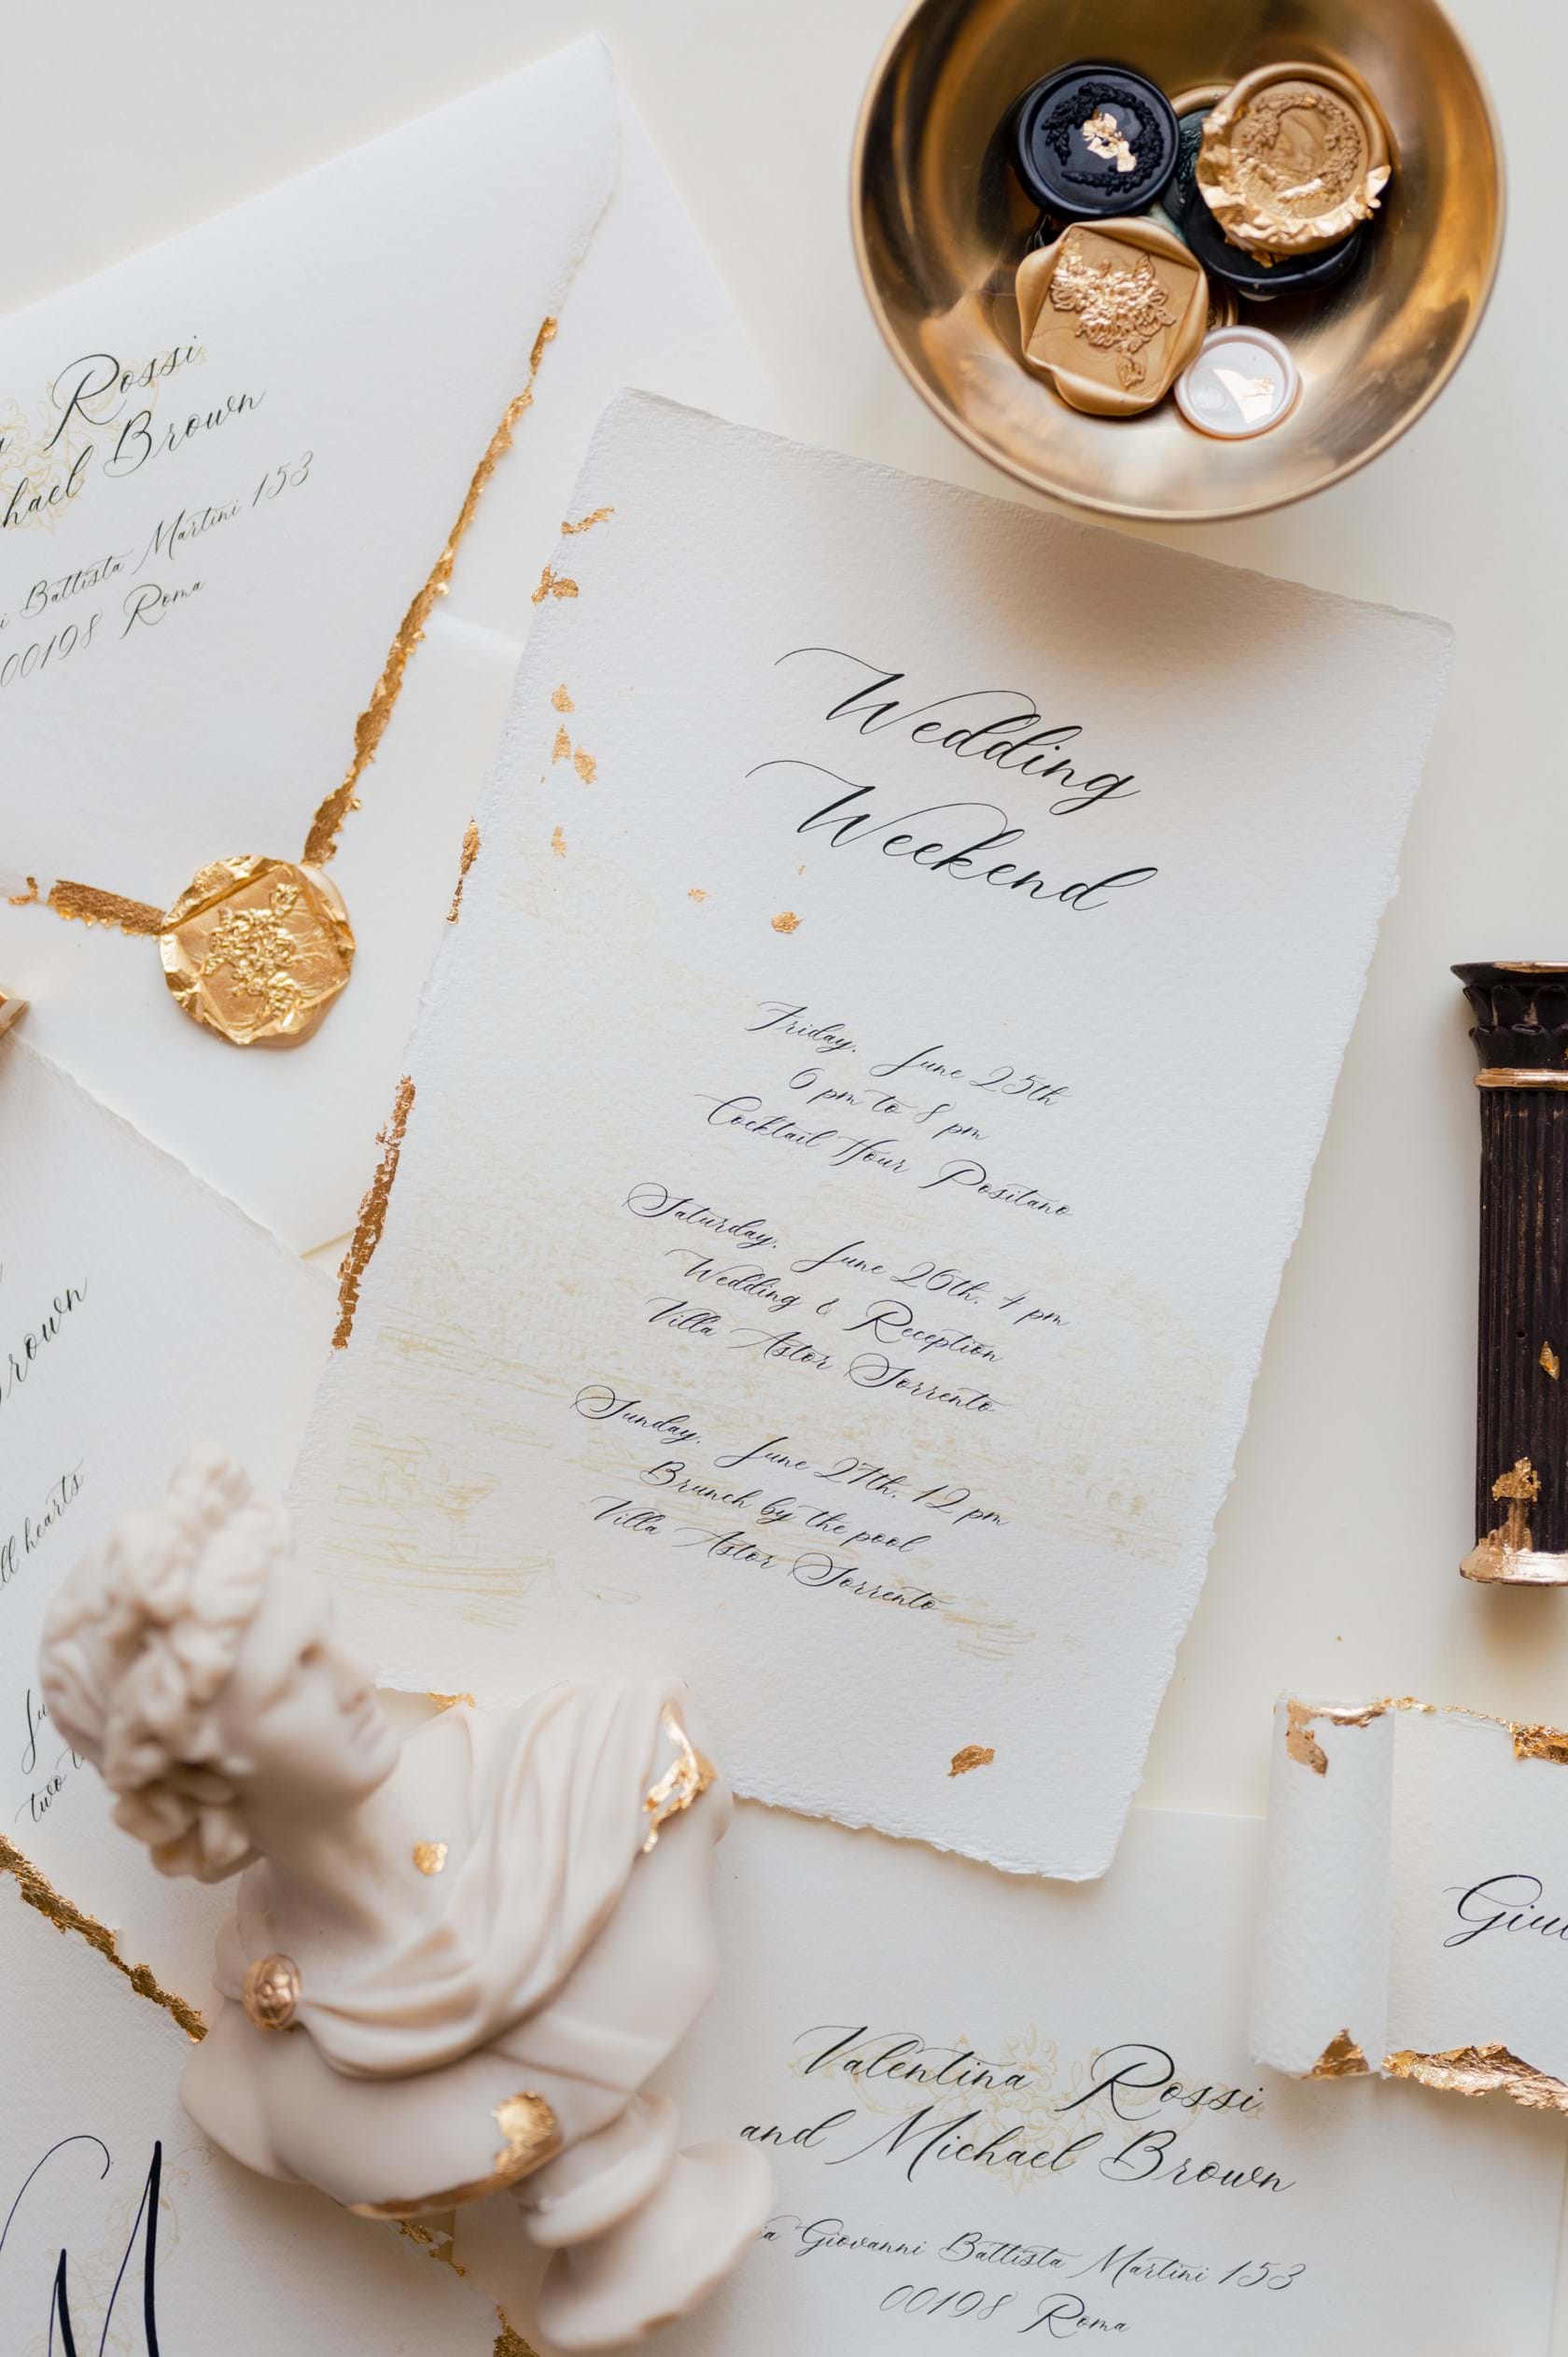 Rossi
hael Brown
Battista Martini 153
00198 Roma
Wedding
Weekend
Friday, June 25th
6 pm to 8 pm
Cocktail Hour Positano
Saturday, June 26th, 4 pm
Wedding & Reception
Villa Astor Sorrento
Sunday, June 27th, 12 pm
Brunch by the pool
Villa Astor Sorrento
rown
ll hearts
two
Giu
Valentina Rossi
and Michael Brown
ia Giovanni Battista Martini 153
00198 Roma
M